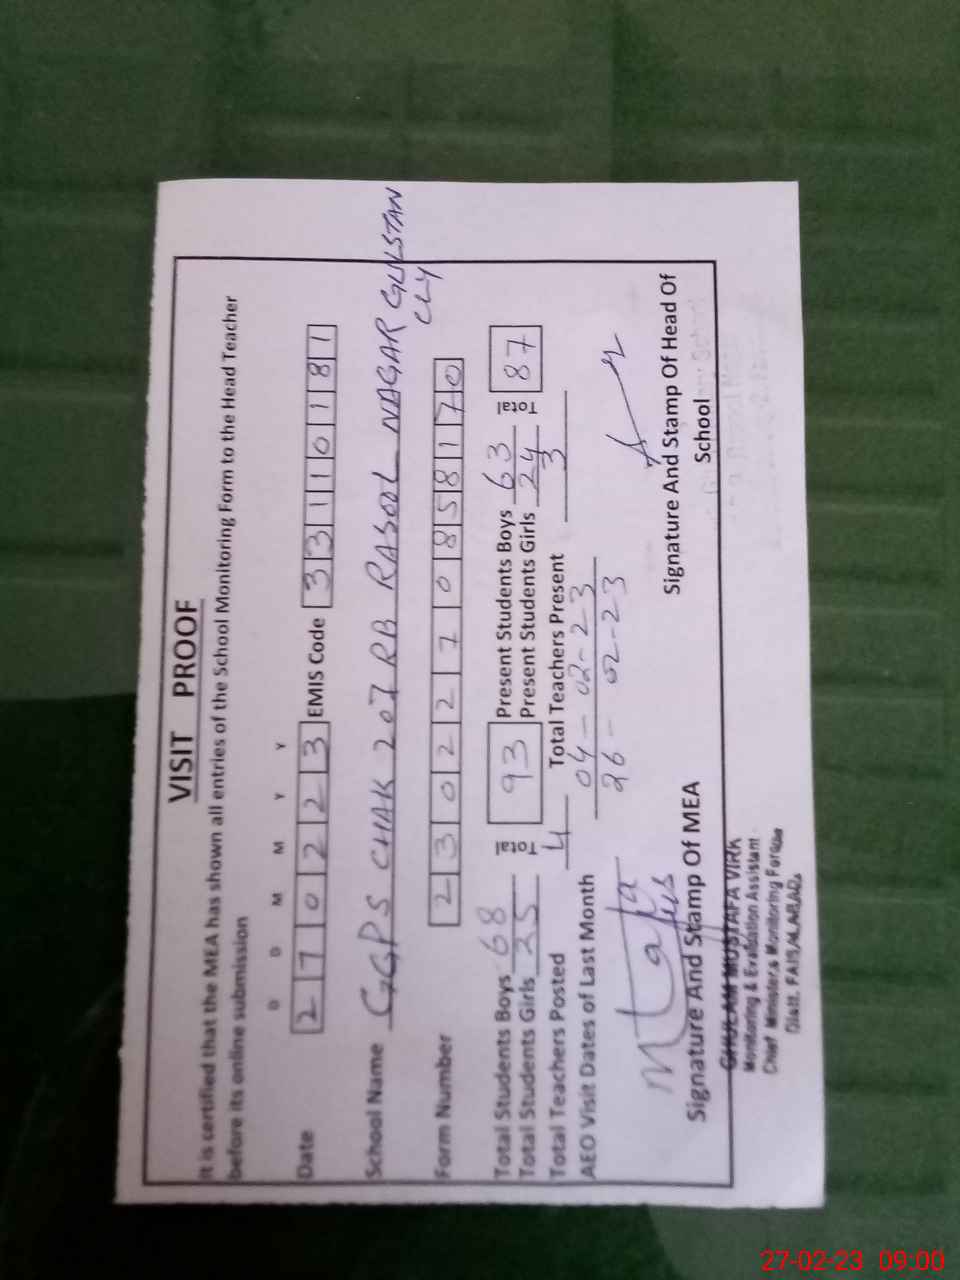 VISIT PROOF
It is certified that the MEA has shown all entries of the School Monitoring Form to the Head Teacher
before its online submission
D D M M Y Y
Date 270223 EMIS Code 33110181
School Name GGPS CHAK 207 RB RASOOL NAGAR GULSTAN
CLY
Form Number 2302270858170
Total Students Boys 68 Total 93 Present Students Boys 63 Total 87
Total Students Girls 25 Present Students Girls 24
Total Teachers Posted 4 Total Teachers Present 3
AEO Visit Dates of Last Month 04-02-23
26-02-23
Signature And Stamp Of MEA Signature And Stamp Of Head Of
School
GHULAM MUSTAFA VIRK
Monitoring & Evaluation Assistant
Chief Minister,s Monitoring Force
Distt. FAISALABAD.
27-02-23 09:00